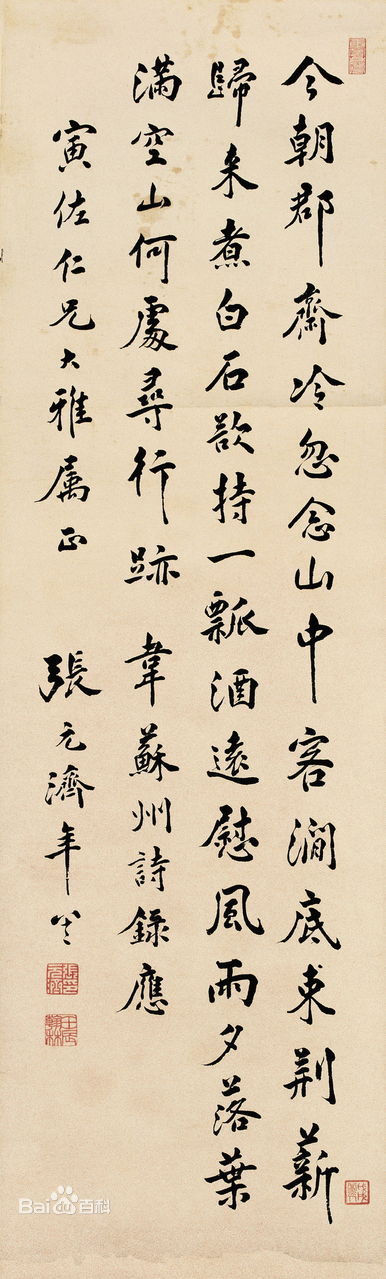 今朝郡齋冷忽念山中客澗底束荆薪
歸来煮白石欲持一瓢酒遠慰風雨夕落葉
滿空山何處尋行跡 韋蘇州詩錄應
寅佐仁兄大雅属正 張元濟年
壬辰翰林
Bai百科